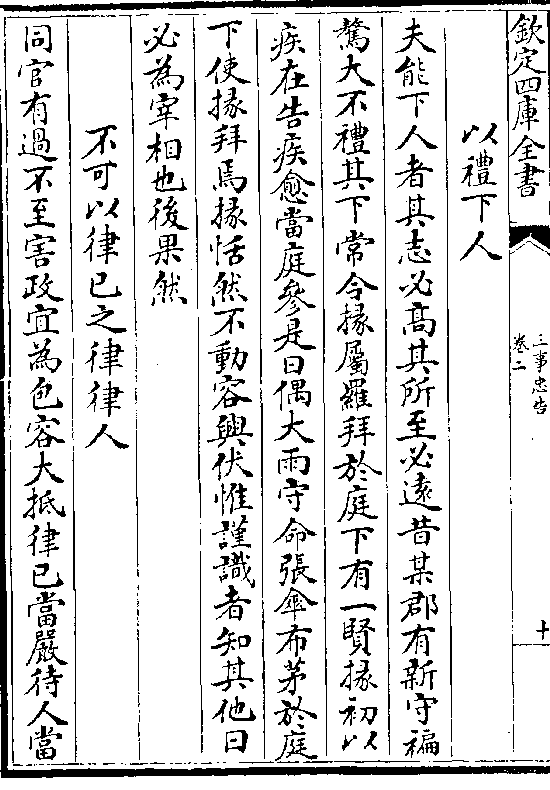 欽定四庫全書
三事忠告
卷二
十
以禮下人
夫能下人者其志必高其所至必遠昔某郡有新守褊
驁大不禮其下常令掾屬羅拜於庭下有一賢掾初以
疾在告疾愈當庭參是日偶大雨守命張傘布茅於庭
下使掾拜焉掾恬然不動容興伏惟謹識者知其他日
必為宰相也後果然
不可以律已之律律人
同官有過不至害政宜為包容大抵律已當嚴待人當